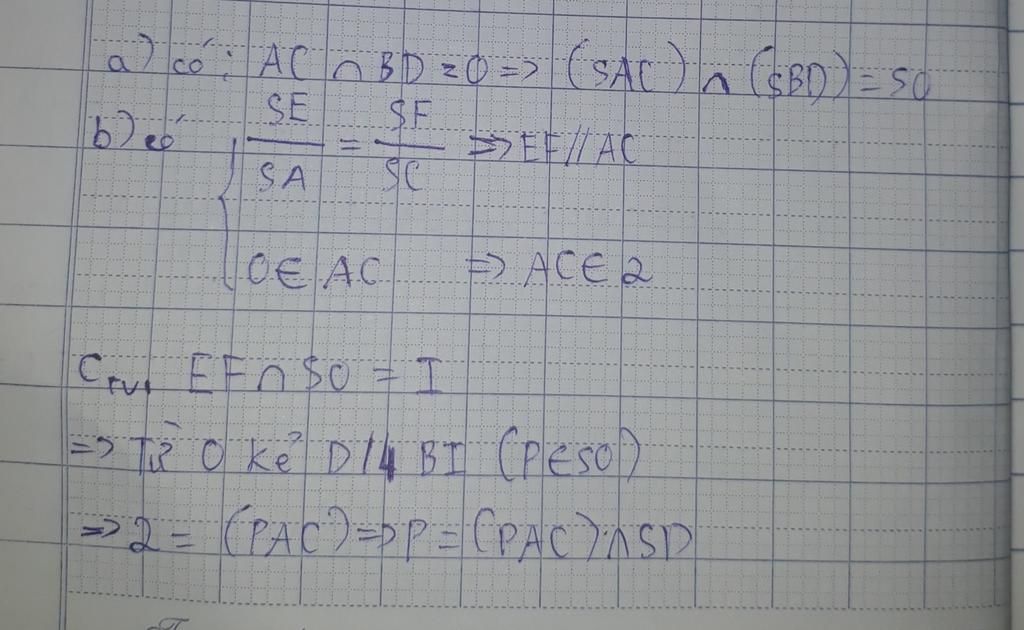 a) có: AC ∩ BD = O => (SAC) ∩ (SBD) = SO
b) có { SE/SA = SF/SC => EF // AC
O ∈ AC => AC ∈ 2
EF ∩ SO = I
=> Từ O kẻ BI (P ∈ SO)
=> 2 = (PAC) => P = (PAC) ∩ SD